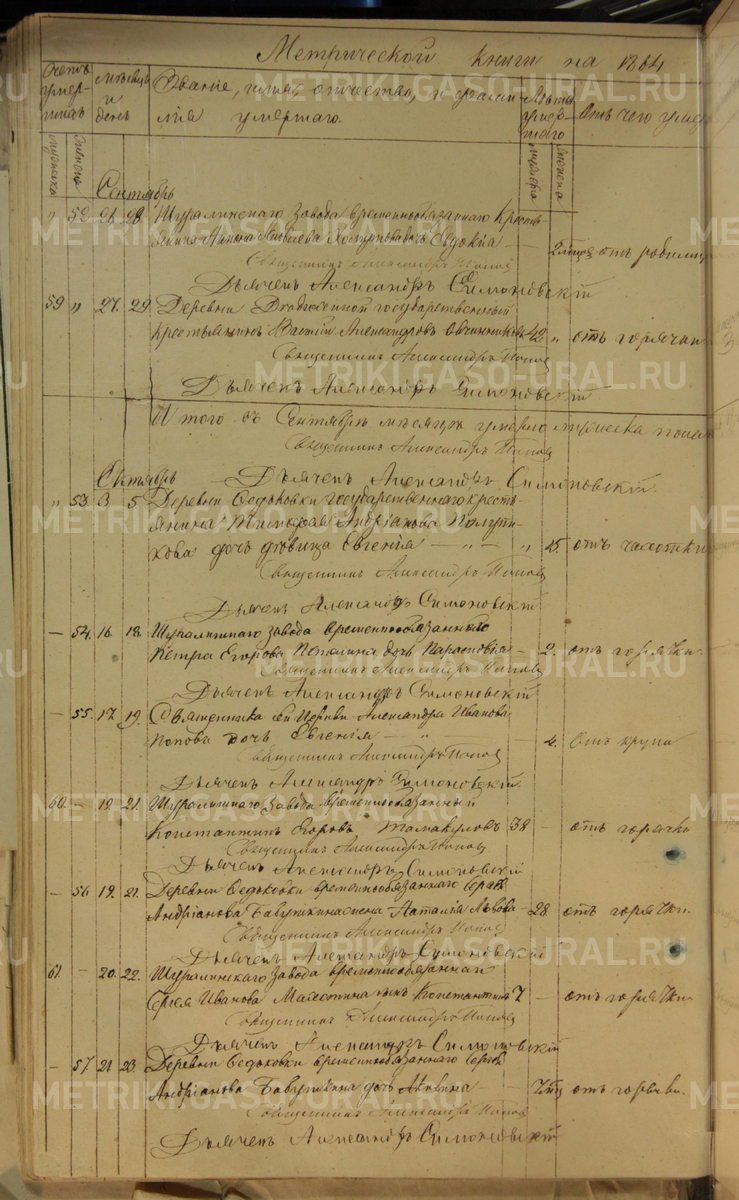 Метрической книги на 1864
Счетъ умершихъ
Мѣсяцъ и день
Званіе, имя, отчество, и фамилія умершаго.
Лѣта умершаго
Отъ чего умеръ
мужеска
женска
мужеска
женска
Сентябрь
" 52 26. 28. Шуралинскаго завода временнообязаннаго Кресть-
янина Яковлева Евдокія — 2 мѣся отъ
Священникъ Александръ Поповъ
Дьячекъ Александръ Симоновскій
59 " 27. 29. Деревни государственный
крестьянинъ Александровъ Овчинниковъ 42 " отъ горячки
Священникъ Александръ Поповъ
Дьячекъ Александръ Симоновскій
Итого въ Сентябрѣ мѣсяцѣ умерло мужеска пола
Священникъ Александръ Поповъ
Октябрь — Дьячекъ Александръ Симоновскій.
" 53 3 5 Деревни Федьковки государственнаго кресть-
янина Тимофея Андріанова Полути-
кова дочь дѣвица Евгенія — " — " 25. отъ чахотки
Священникъ Александръ Поповъ
Дьячекъ Александръ Симоновскій
— 54. 16. 18. Шуралинскаго завода временнообязаннаго
Петра Егорова дочь — 2. отъ горячки.
Священникъ Александръ Поповъ
Дьячекъ Александръ Симоновскій
— 55. 17. 19. Священника сей Церкви Александра Иванова
Попова дочь Евгенія — " — 4. отъ крупа
Священникъ Александръ Поповъ
Дьячекъ Александръ Симоновскій.
60. — 19. 21. Шуралинскаго завода временнообязанный
Константинъ Егоровъ Талакуловъ 38 — отъ горячки
Священникъ Александръ Поповъ
Дьячекъ Александръ Симоновскій
— 56 19. 21. Деревни Федьковки временнообязаннаго Сергѣя
Андріанова Бабушкина жена Наталія Львова — 28 отъ горячки.
Священникъ Александръ Поповъ
Дьячекъ Александръ Симоновскій
61. — 20. 22. Шуралинскаго завода временнообязаннаго
Сергѣя Иванова сынъ Константинъ 7 — отъ горячки.
Священникъ Александръ Поповъ
Дьячекъ Александръ Симоновскій
— 57. 21. 23. Деревни Федьковки временнообязаннаго Сергѣя
Андріанова Бабушкина дочь — отъ горячки.
Священникъ Александръ Поповъ
Дьячекъ Александръ Симоновскій
METRIKI.GASOURAL.RU